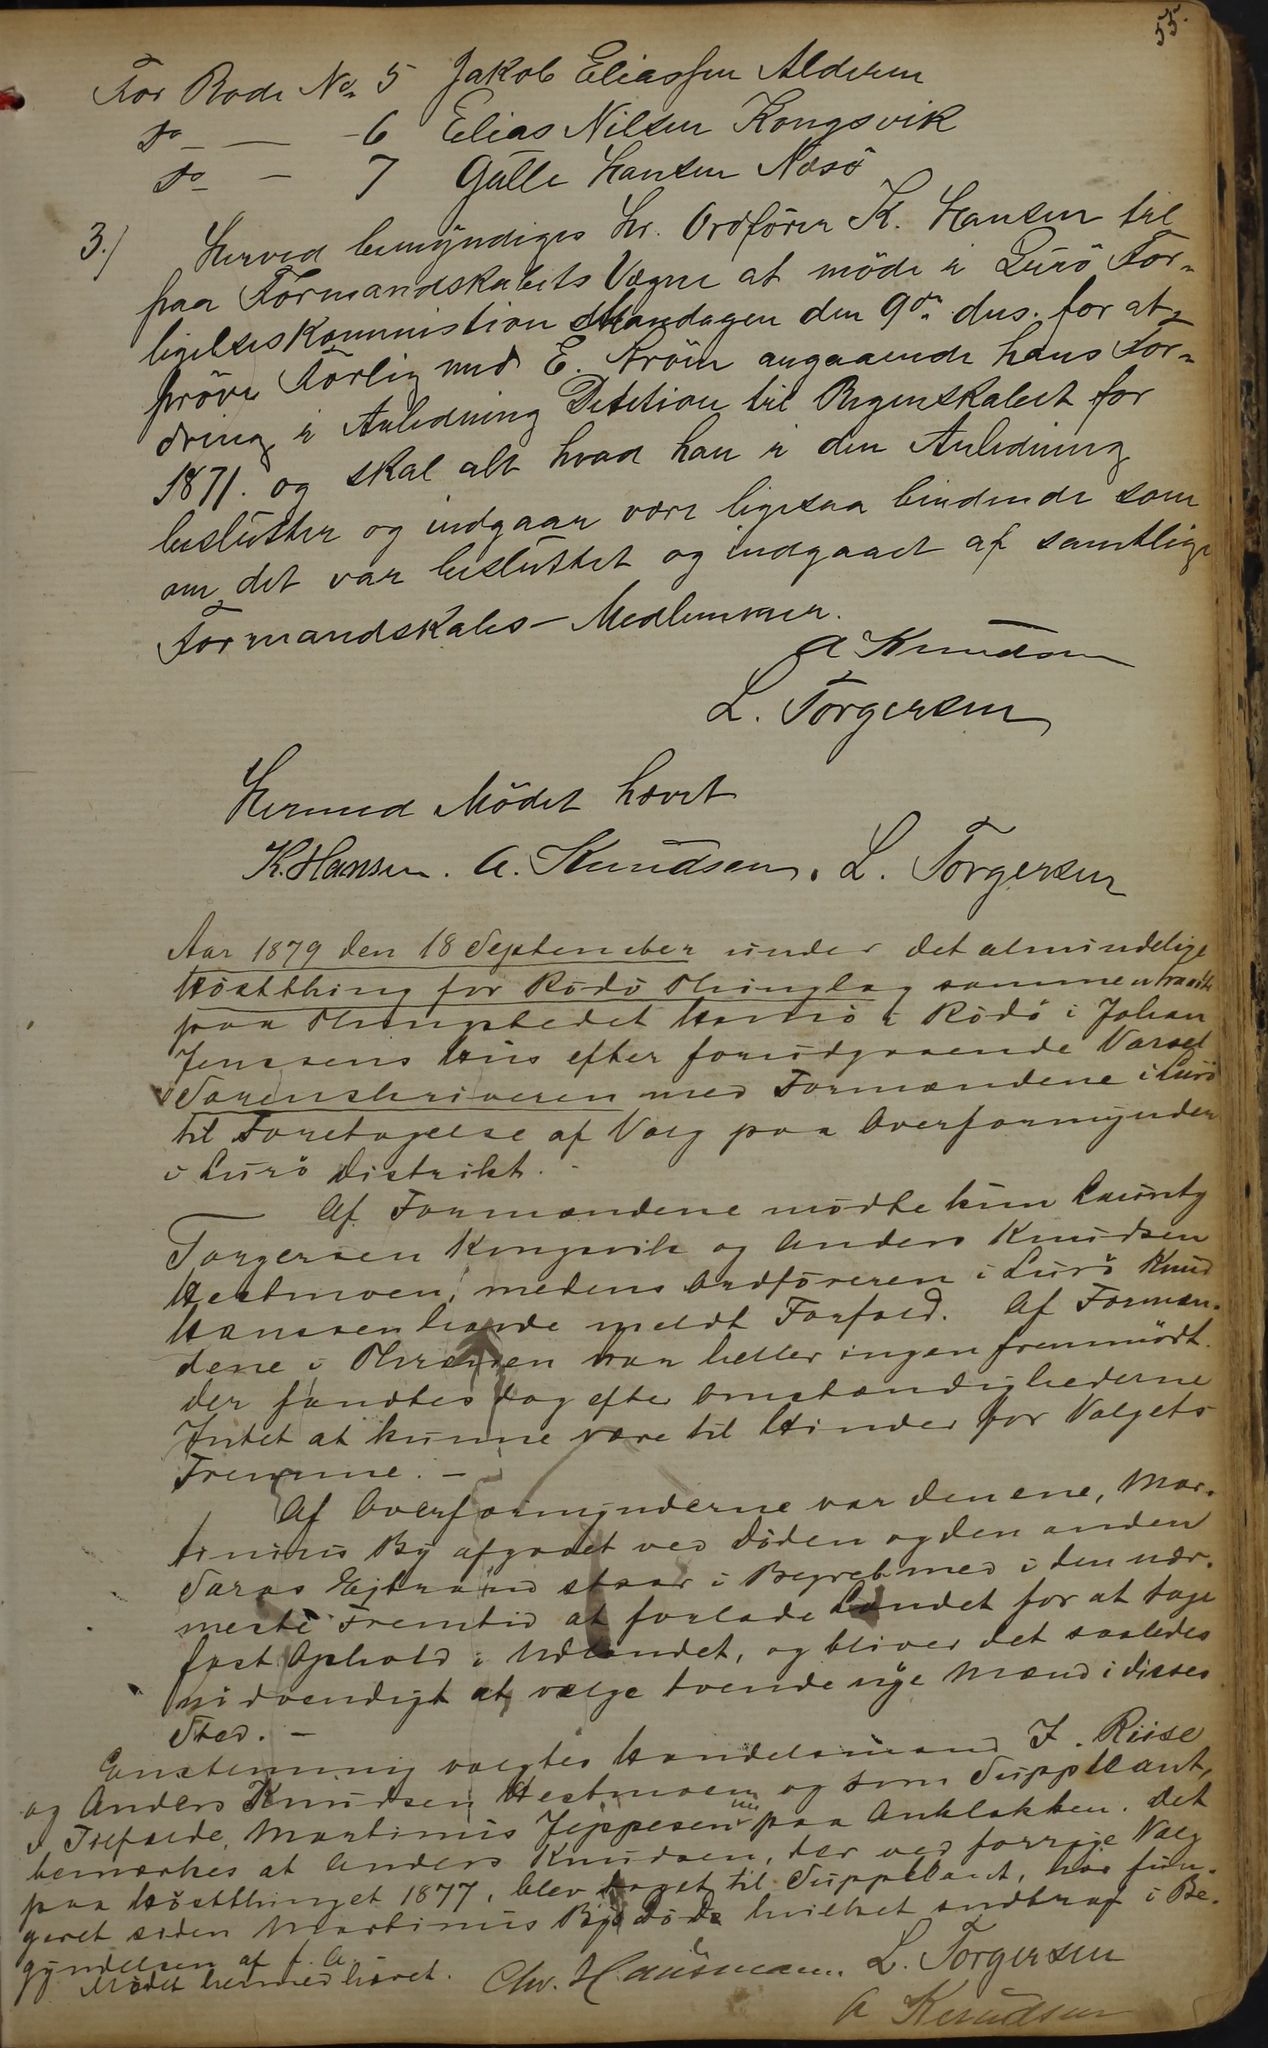 55.
For Rode No 5 Jakob Eliassen Alderen
do — - 6 Elias Nilsen Kongsvik
do - 7 Gulle Hansen Næsö
3./ Herved bemyndiges Hr. Ordförer K. Hansen til
paa Formandskabets Vegne at möde i Lurö For-
ligelseskommistion Mandagen den 9de ds. for at
pröve Forlig med E. Ström angaaende hans For-
dring i Anledning Desetion til Regnskabet for
1871. og skal alt hvad han i den Anledning
beslutter og indgaar være ligesaa bindende som
om det var besluttet og indgaaet af samtlige
Formandskabs-Medlemmer.
A Knudsen
L. Torgersen
Hermed Mödet hævet
K. Hansen. A. Knudsen. L. Torgersen
Aar 1879 den 18 September under det almindelige
Høstthing for Rödö Thinglag sammentraadte
paa Thingstedet i Rödö i Johan
Jenssens Hus efter forudgaaende Varsel
Sorenskriveren med Formændene i Lurö
til Foretagelse af Valg paa Overformynder
i Lurö Distrikt.
Af Formændene mödte kun Lauritz
Torgersen Kongsvik og Anders Knudsen
Hestmoen, medens Ordföreren i Lurö Knud
Hanssen havde meldt Forfald. Af Formæn-
dene i Thrænen var heller ingen fremmödt.
der fandtes dog efter Omstændighederne
Intet at kunne være til Hinder for Valgets
Fremme. —
Af Overformynderne var den ene, Mar-
tinius By afgaaet ved döden og den anden
staar i Begreb med i den nær-
meste Fremtid at forlade Landet for at tage
fast Ophold i Udlandet, og bliver det saaledes
nödvendigt at vælge tvende nye Mænd i disses
Sted. —
Enstemmig valgtes Handelsmand J. Riise
og Anders Knudsen Hestmoen og som Suppleant,
i Tilfælde, Martinus Jeppesen paa . det
bemærkes at Anders Knudsen, der ved forrige Valg
paa Høstthinget 1877, blev taget til Suppleant, har fun-
geret siden Martinus By döde hvilket indtraf i Be-
gyndelsen af f. A.
Mödet hermed hævet. Chr. Hausmann. L. Torgersen
A Knudsen